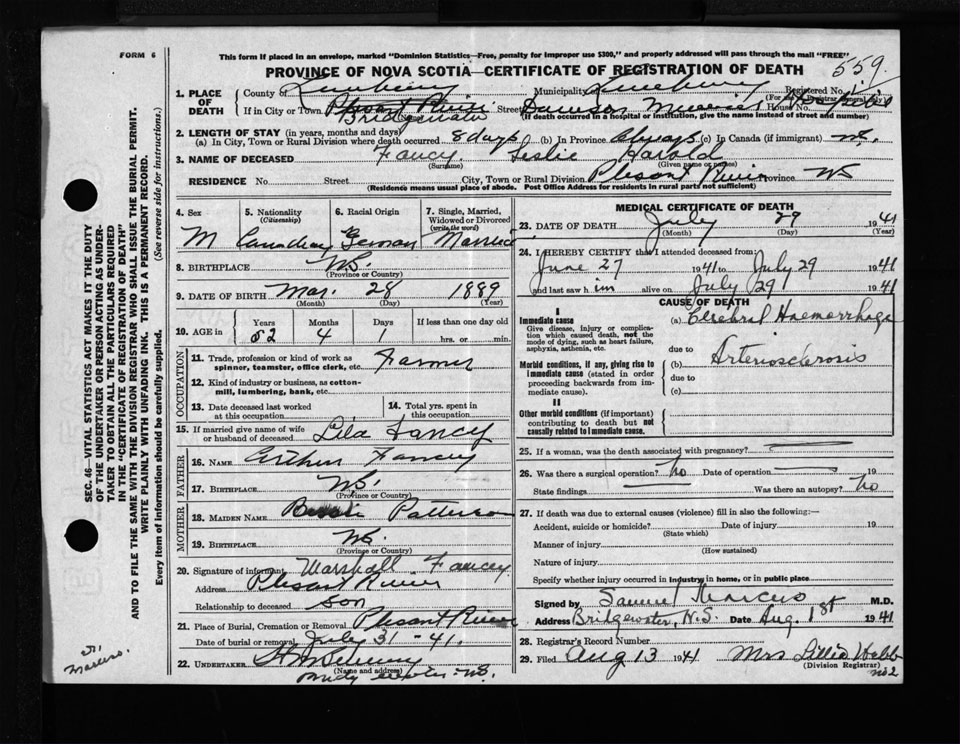 FORM 6
This form if placed in an envelope, marked "Dominion Statistics—Free, penalty for improper use $300," and properly addressed will pass through the mail "FREE"
PROVINCE OF NOVA SCOTIA—CERTIFICATE OF REGISTRATION OF DEATH
559
1. PLACE OF DEATH
County of Lunenburg Municipality Lunenburg Registered No.
If in City or Town Plesant River Bridgewater Street Dawson Memorial Hospital House No.
(If death occurred in a hospital or institution, give the name instead of street and number)
2. LENGTH OF STAY (in years, months and days)
(a) In City, Town or Rural Division where death occurred 8 days (b) In Province always (c) In Canada (if immigrant)
3. NAME OF DECEASED Fancy. Leslie Harold
(Surname) (Given name or names)
RESIDENCE No. Street City, Town or Rural Division Plesant River Province NS
(Residence means usual place of abode. Post Office Address for residents in rural parts not sufficient)
4. Sex M
5. Nationality (Citizenship) Canadian
6. Racial Origin German
7. Single, Married, Widowed or Divorced (write the word) Married
8. BIRTHPLACE NS.
(Province or Country)
9. DATE OF BIRTH Mar. 28 1889
(Month) (Day) (Year)
10. AGE in Years Months Days If less than one day old
52 4 1 hrs. or min.
OCCUPATION
11. Trade, profession or kind of work as spinner, teamster, office clerk, etc. Farmer
12. Kind of industry or business, as cotton-mill, lumbering, bank, etc.
13. Date deceased last worked at this occupation
14. Total yrs. spent in this occupation
15. If married give name of wife or husband of deceased Lila Fancy
FATHER
16. NAME Arthur Fancy
17. BIRTHPLACE NS.
(Province or Country)
MOTHER
18. MAIDEN NAME Bessie Patterson
19. BIRTHPLACE NS.
(Province or Country)
20. Signature of informant Marshall Fancey.
Address Plesant River
Relationship to deceased son
21. Place of Burial, Cremation or Removal Plesant River
Date of burial or removal July 31 - 41.
22. UNDERTAKER
(Name and address)
Bridgewater NS.
MEDICAL CERTIFICATE OF DEATH
23. DATE OF DEATH July 29 1941
(Month) (Day) (Year)
24. I HEREBY CERTIFY that I attended deceased from
June 27 1941 to July 29 1941
and last saw him alive on July 29 1941
CAUSE OF DEATH
I
Immediate cause (a) Cerebral Haemorrhage
Give disease, injury or complication which caused death, not the mode of dying, such as heart failure, asphyxia, asthenia, etc.
due to
Morbid conditions, if any, giving rise to immediate cause (stated in order proceeding backwards from immediate cause).
(b) Arteriosclerosis
due to
(c)
II
Other morbid conditions (if important) contributing to death but not causally related to immediate cause.
25. If a woman, was the death associated with pregnancy?
26. Was there a surgical operation? no Date of operation 19
State findings Was there an autopsy? no
27. If death was due to external causes (violence) fill in also the following:—
Accident, suicide or homicide? Date of injury 19
(State which)
Manner of injury
(How sustained)
Nature of injury
Specify whether injury occurred in industry, in home, or in public place
Signed by Samuel Marcus M.D.
Address Bridgewater, N.S. Date Aug. 1st 1941
28. Registrar's Record Number
29. Filed Aug 13 1941 Mrs Lillia Webb
(Division Registrar)
no 2
SEC. 46—VITAL STATISTICS ACT MAKES IT THE DUTY
OF THE UNDERTAKER OR PERSON ACTING AS UNDER-
TAKER TO OBTAIN ALL THE PARTICULARS REQUIRED
IN THE "CERTIFICATE OF REGISTRATION OF DEATH"
AND TO FILE THE SAME WITH THE DIVISION REGISTRAR WHO SHALL ISSUE THE BURIAL PERMIT.
WRITE PLAINLY WITH UNFADING INK. THIS IS A PERMANENT RECORD.
Every item of information should be carefully supplied. (See reverse side for instructions.)